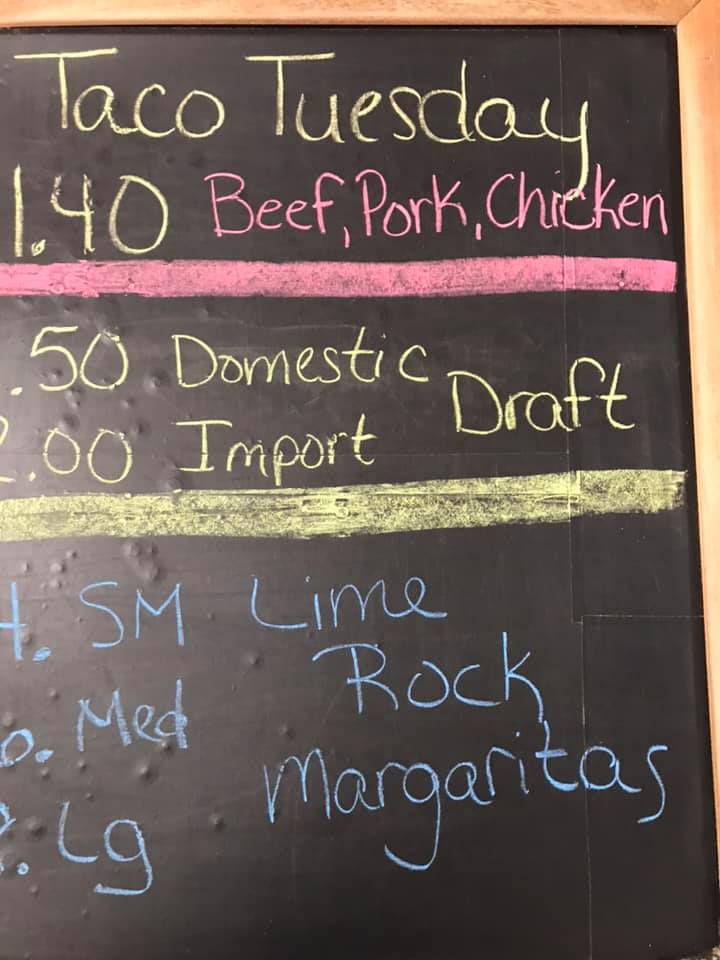 Taco Tuesday
1.40 Beef, Pork, Chicken
.50 Domestic Draft
2.00 Import
4. SM Lime
Rock
. Med
Margaritas
. Lg